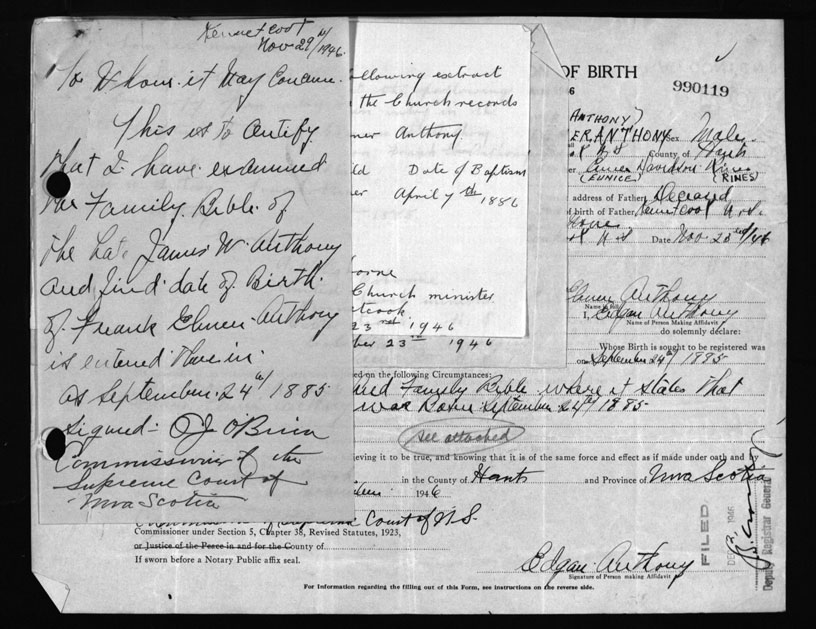 Kennetcook
Nov 29th/1946.
To Whom it May Concern.
This is to Certify
that I have examined
the Family Bible of
the Late James W. Anthony
and find date of Birth
of Frank Elmer Anthony
is entered there in
as September 24th/1885
Signed - O J O'Brien
Commissioner of the
Supreme Court of
Nova Scotia
ollowing extract
the Church records
mer Anthony
ld Date of Baptism
er April 7th 1886
orne
Church minister
etcook
23rd 1946
ber 23rd 1946
OF BIRTH
6
990119
ANTHONY)
ER ANTHONY Sex Male
County of Hants
er Eunice Davidson Rines
(EUNICE) (RINES)
address of Father, Deceased
of birth of Father, Kennetcook N.S.
Date Nov 23rd/46
Elmer Anthony
Name in full
I, Edgar Anthony
Name of Person Making Affidavit
do solemnly declare:
Whose Birth is sought to be registered was
on September 24th 1885
ed on the following Circumstances:
ned Family Bible where it states that
was Born September 24th 1885
see attached
ieving it to be true, and knowing that it is of the same force and effect as if made under oath and by
in the County of Hants and Province of Nova Scotia
1946
Commissioner of Supreme Court of N.S.
Commissioner under Section 5, Chapter 38, Revised Statutes, 1923,
or Justice of the Peace in and for the County of
If sworn before a Notary Public affix seal.
Edgar Anthony
Signature of Person making Affidavit
For Information regarding the filling out of this Form, see instructions on the reverse side.
FILED
1946
Deputy Registrar General